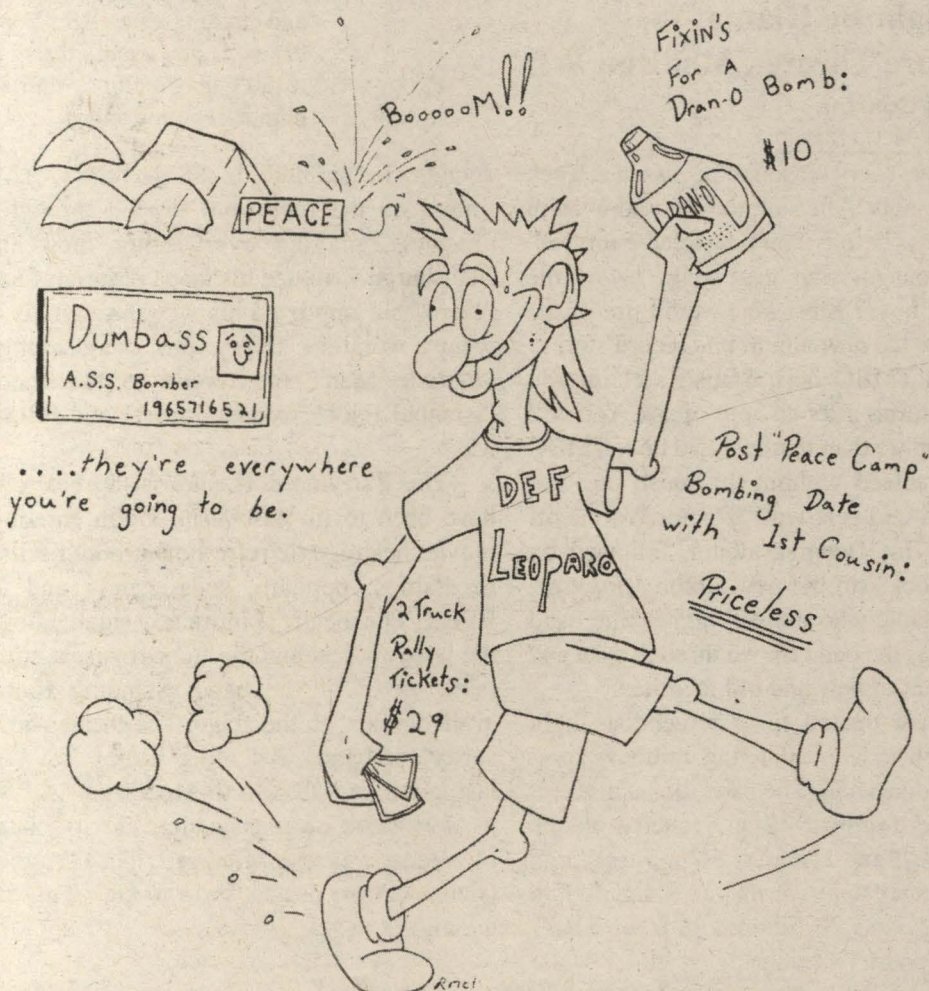 Booooom!!
Fixin's
For A
Dran-O Bomb:
$10
DRAN-O
PEACE
Dumbass
A.S.S. Bomber
1965716521
....they're everywhere
you're going to be.
DEF
LEOPARD
Post "Peace Camp"
Bombing Date
with 1st Cousin:
Priceless
2 Truck
Rally
Tickets:
$29